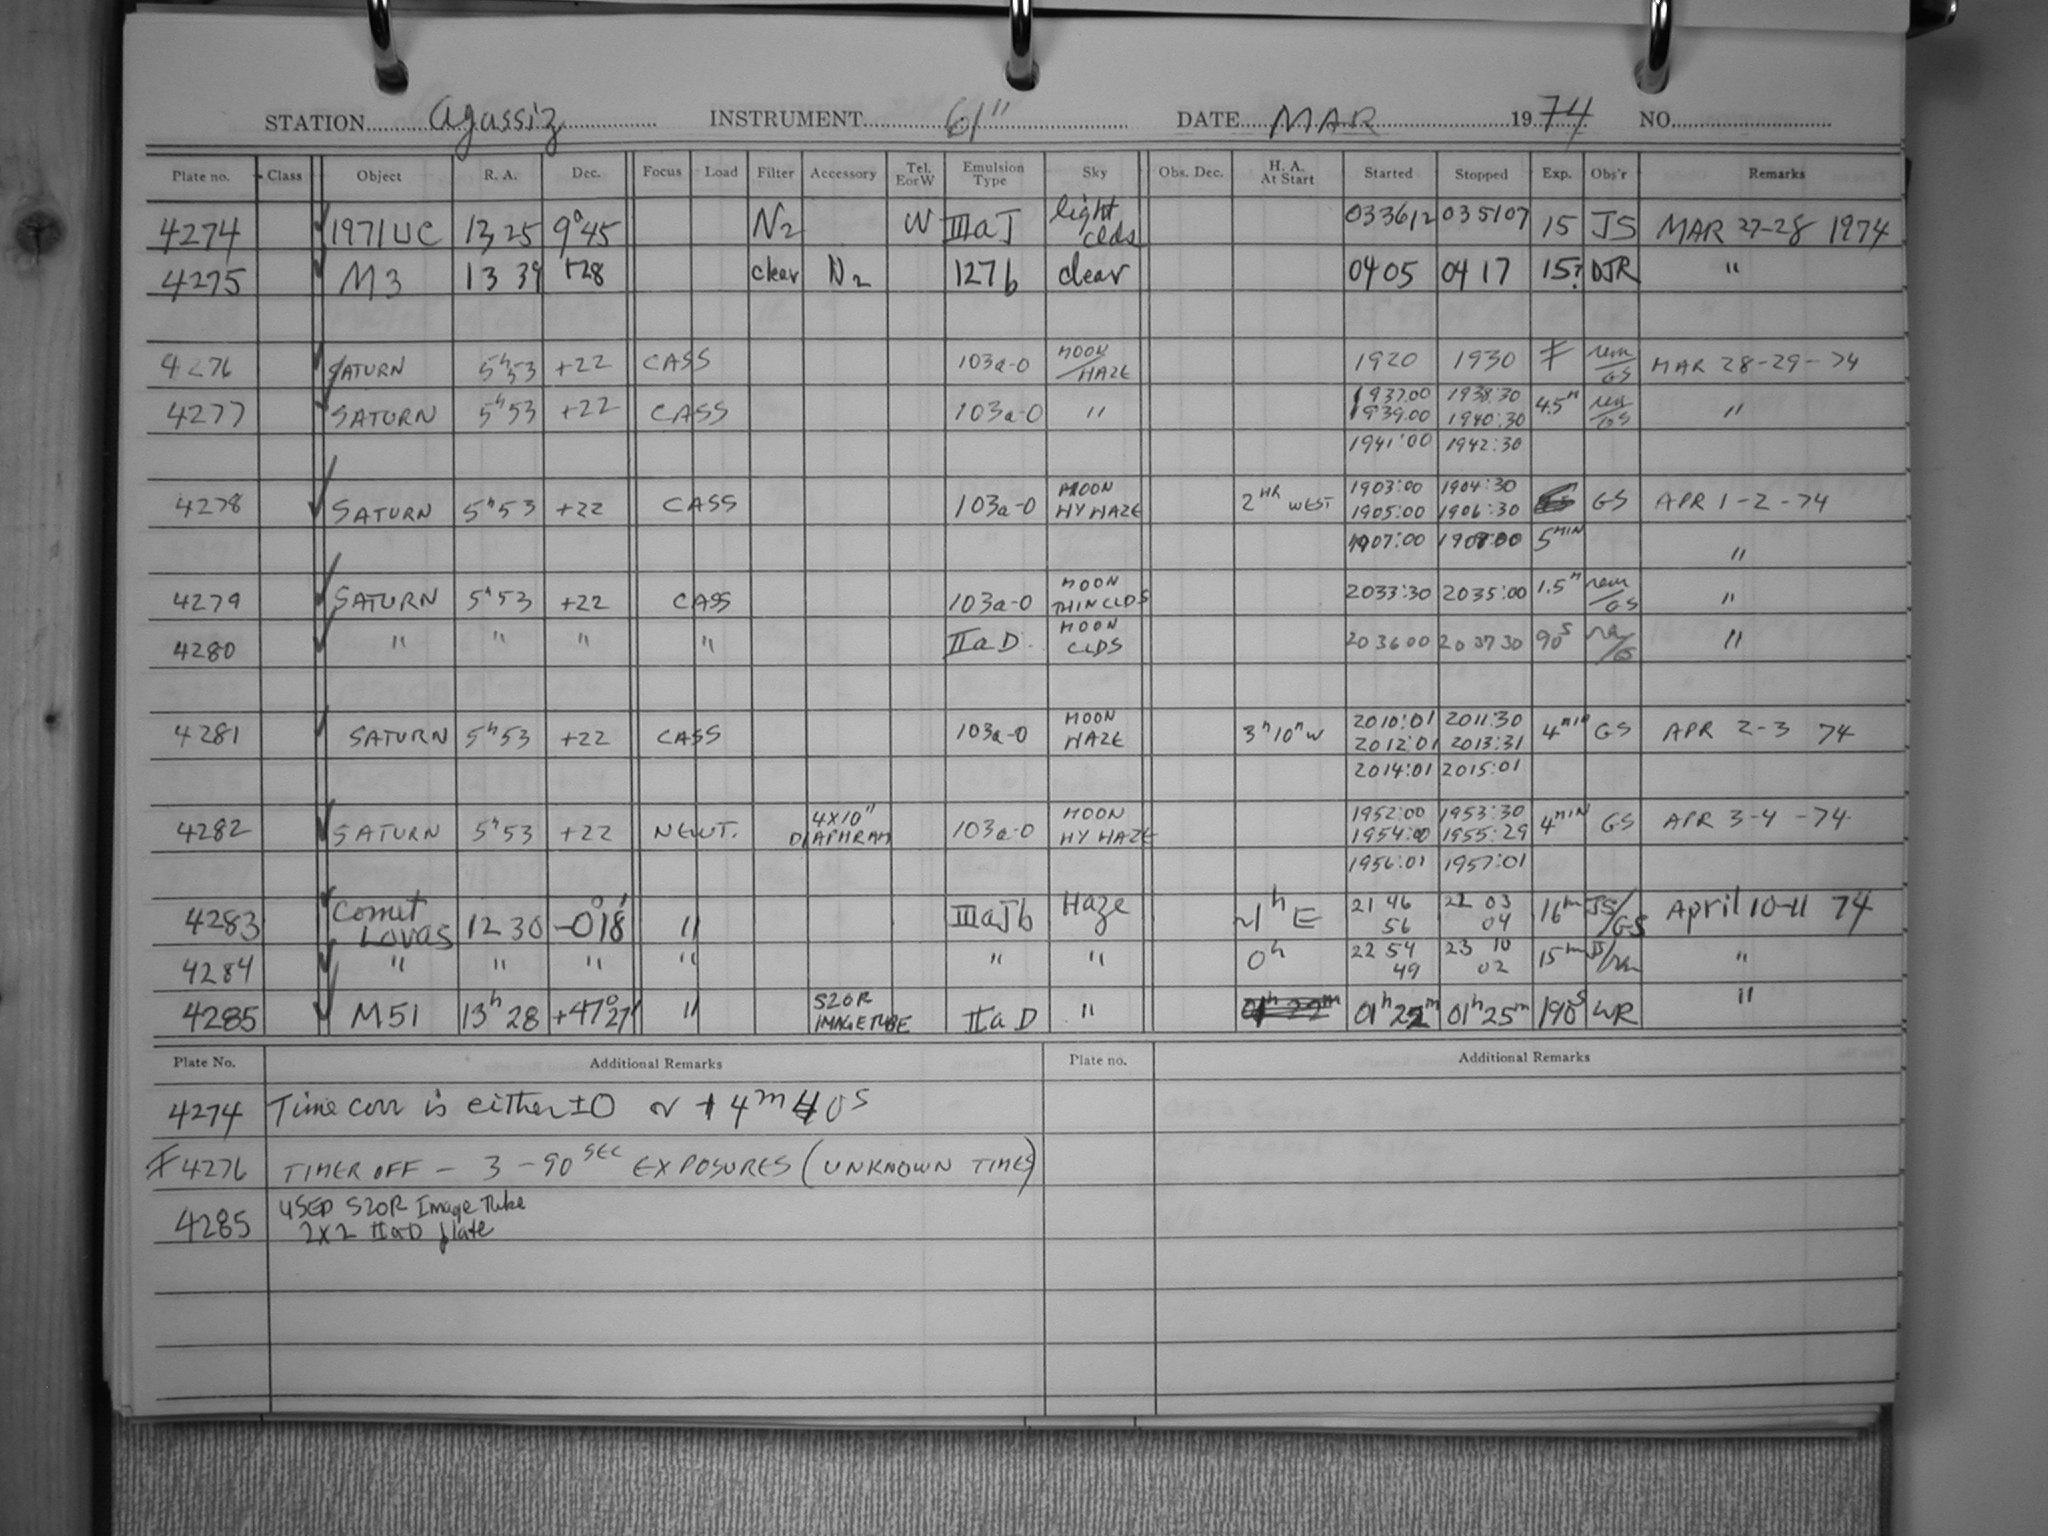 STATION Agassiz INSTRUMENT 61" DATE MAR 1974 NO.
Plate no. Class Object R. A. Dec. Focus Load Filter Accessory Tel. E or W Emulsion Type Sky Obs. Dec. H. A. At Start Started Stopped Exp. Obs'r Remarks
4274 1971UC 13 25 9°45 N2 W IIIaJ light clds 033612 035107 15 JS MAR 27-28 1974
4275 M3 13 39 +28 clear N2 127b clear 0405 0417 15? DJR "
4276 SATURN 5h53 +22 CASS 103a-0 MOON/HAZE 1920 1930 GS MAR 28-29-74
4277 SATURN 5h53 +22 CASS 103a-0 " 1937:00 1938:30 4.5m GS "
1939:00 1940:30
1941:00 1942:30
4278 SATURN 5h53 +22 CASS 103a-0 MOON HY HAZE 2HR WEST 1903:00 1904:30 GS APR 1-2-74
1905:00 1906:30
1907:00 1908:00 5MIN "
4279 SATURN 5h53 +22 CASS 103a-0 MOON THIN CLDS 2033:30 2035:00 1.5m GS "
4280 " " " " IIaD MOON CLDS 203600 203730 90s "
4281 SATURN 5h53 +22 CASS 103a-0 MOON HAZE 3h10m W 2010:01 2011:30 4MIN GS APR 2-3 74
2012:01 2013:31
2014:01 2015:01
4282 SATURN 5h53 +22 NEWT. 4X10" DIAPHRAM 103a-0 MOON HY HAZE 1952:00 1953:30 4MIN GS APR 3-4-74
1954:00 1955:29
1956:01 1957:01
4283 Comet Lovas 12 30 -0°18' " IIIaJb Haze ~1h E 21 46 22 03 16m JS/GS April 10-11 74
56 04
4284 " " " " " " 0h 22 54 23 10 15m "
49 02
4285 M51 13h 28 +47°27' " S20R IMAGE TUBE IIaD " 01h 22m 01h 25m 190s WR "
Plate No. Additional Remarks Plate no. Additional Remarks
4274 Time corr is either ±0 or +4m40s
4276 TIMER OFF - 3 - 90SEC EXPOSURES (UNKNOWN TIMES)
4285 USED S20R Image Tube
2X2 IIaD plate